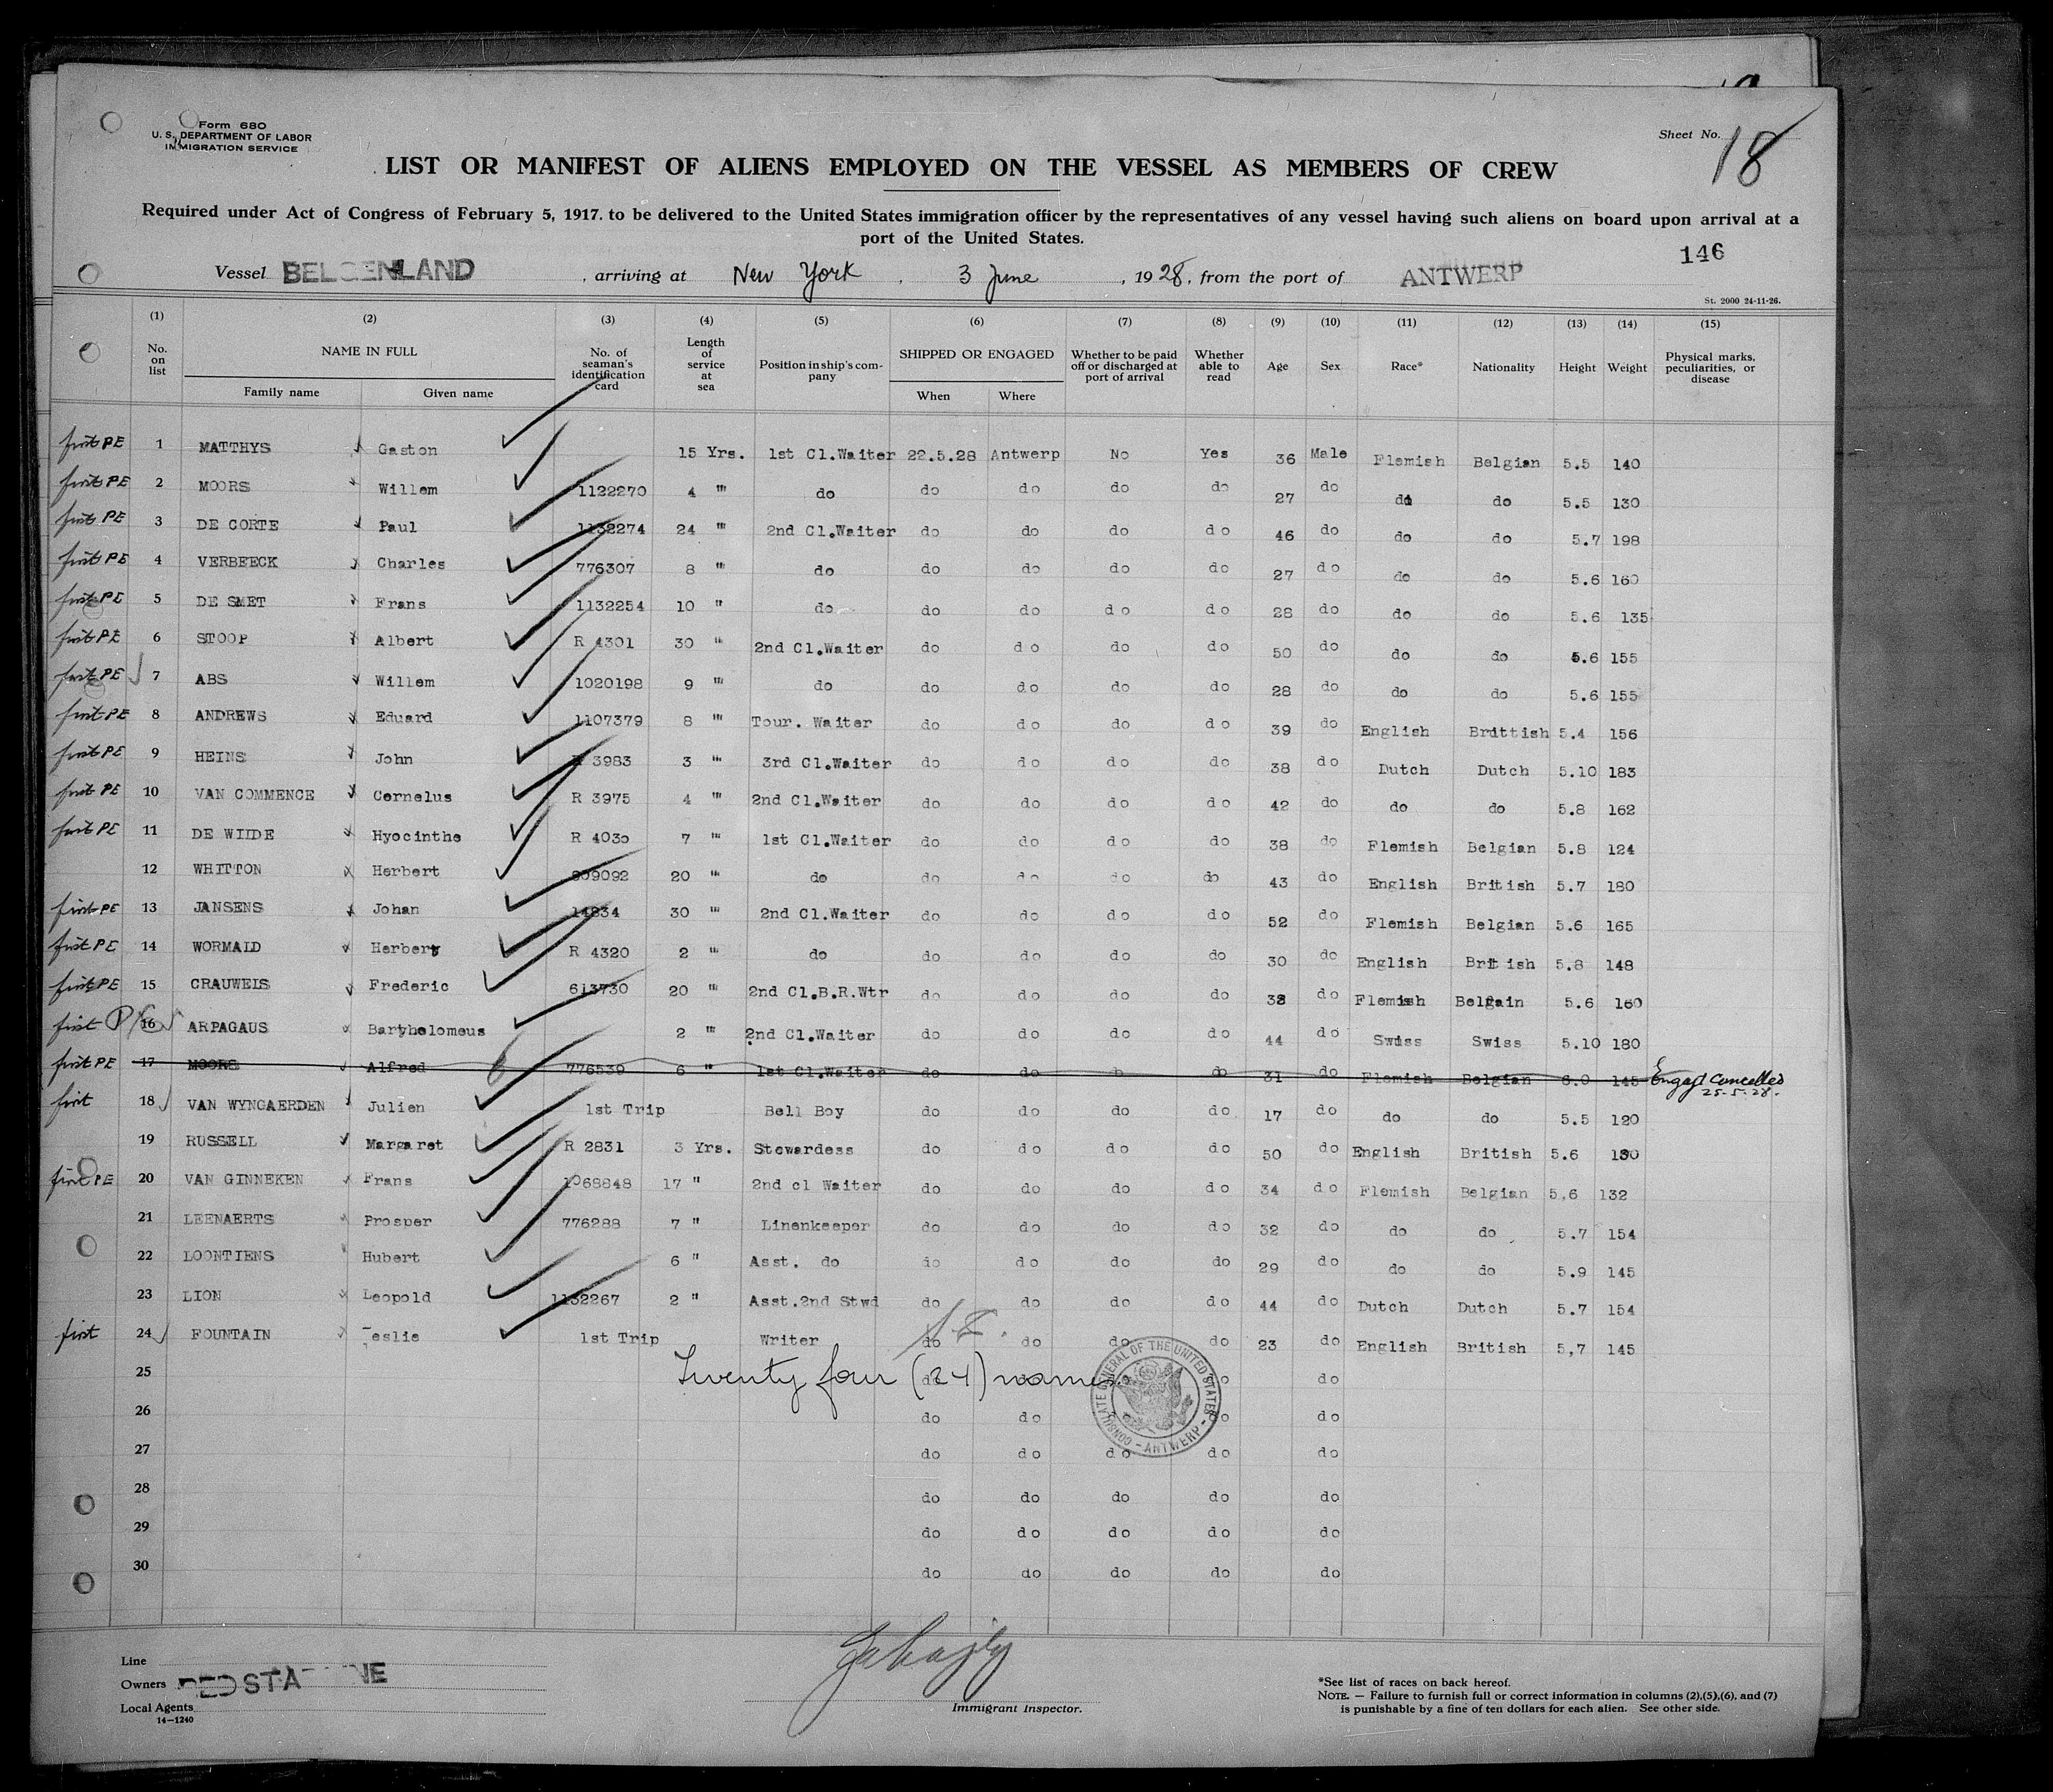 Form 680
U. S. DEPARTMENT OF LABOR
IMMIGRATION SERVICE
Sheet No. 18
LIST OR MANIFEST OF ALIENS EMPLOYED ON THE VESSEL AS MEMBERS OF CREW
Required under Act of Congress of February 5, 1917. to be delivered to the United States immigration officer by the representatives of any vessel having such aliens on board upon arrival at a
port of the United States.
146
Vessel BELGENLAND , arriving at New York , 3 June , 1928, from the port of ANTWERP
St. 2000 24-11-26.
(1) (2) (3) (4) (5) (6) (7) (8) (9) (10) (11) (12) (13) (14) (15)
No. on list NAME IN FULL Family name Given name No. of seaman's identification card Length of service at sea Position in ship's company SHIPPED OR ENGAGED When Where Whether to be paid off or discharged at port of arrival Whether able to read Age Sex Race* Nationality Height Weight Physical marks, peculiarities, or disease
first PE 1 MATTHYS Gaston 15 Yrs. 1st Cl.Waiter 22.5.28 Antwerp No Yes 36 Male Flemish Belgian 5.5 140
first PE 2 MOORS Willem 1122270 4 " do do do do do 27 do do do 5.5 130
first PE 3 DE CORTE Paul 1132274 24 " 2nd Cl.Waiter do do do do 46 do do do 5.7 198
first PE 4 VERBEECK Charles 776307 8 " do do do do do 27 do do do 5.6 160
first PE 5 DE SMET Frans 1132254 10 " do do do do do 28 do do do 5.6 135
first PE 6 STOOP Albert R 4301 30 " 2nd Cl.Waiter do do do do 50 do do do 5.6 155
first PE 7 ABS Willem 1020198 9 " do do do do do 28 do do do 5.6 155
first PE 8 ANDREWS Eduard 1107379 8 " Tour. Waiter do do do do 39 do English Brittish 5.4 156
first PE 9 HEINS John R 3983 3 " 3rd Cl.Waiter do do do do 38 do Dutch Dutch 5.10 183
first PE 10 VAN COMMENCE Cornelus R 3975 4 " 2nd Cl.Waiter do do do do 42 do do do 5.8 162
first PE 11 DE WIIDE Hyocinthe R 4030 7 " 1st Cl.Waiter do do do do 38 do Flemish Belgian 5.8 124
12 WHITTON Herbert 909092 20 " do do do do do 43 do English British 5.7 180
first PE 13 JANSENS Johan 14834 30 " 2nd Cl.Waiter do do do do 52 do Flemish Belgian 5.6 165
first PE 14 WORMAID Herbert R 4320 2 " do do do do do 30 do English British 5.8 148
first PE 15 CRAUWEIS Frederic 613730 20 " 2nd Cl.B.R.Wtr do do do do 38 do Flemish Belgain 5.6 160
first 16 ARPAGAUS Barthelomeus 2 " 2nd Cl.Waiter do do do do 44 do Swiss Swiss 5.10 180
first PE 17 MOORS Alfred 776539 6 " 1st Cl.Waiter do do do do 31 do Flemish Belgian 6.0 145 Engagt Cancelled
25.5.28.
first 18 VAN WYNGAERDEN Julien 1st Trip Bell Boy do do do do 17 do do do 5.5 120
19 RUSSELL Margaret R 2831 3 Yrs. Stewardess do do do do 50 do English British 5.6 130
first PE 20 VAN GINNEKEN Frans 1068848 17 " 2nd cl Waiter do do do do 34 do Flemish Belgian 5,6 132
21 LEENAERTS Prosper 776288 7 " Linenkeeper do do do do 32 do do do 5.7 154
22 LOONTIENS Hubert 6 " Asst. do do do do do 29 do do do 5.9 145
23 LION Leopold 1132267 2 " Asst.2nd Stwd do do do do 44 do Dutch Dutch 5.7 154
first 24 FOUNTAIN Leslie 1st Trip Writer do do do do 23 do English British 5,7 145
Twenty four (24) names
25 do do do
26 do do do do do
27 do do do do do
28 do do do do do
29 do do do do do
30 do do do do do
CONSULATE GENERAL OF THE UNITED STATES - ANTWERP -
Line
Owners RED STAR LINE
Local Agents
14—1240
Immigrant Inspector.
*See list of races on back hereof.
NOTE. — Failure to furnish full or correct information in columns (2),(5),(6), and (7)
is punishable by a fine of ten dollars for each alien. See other side.